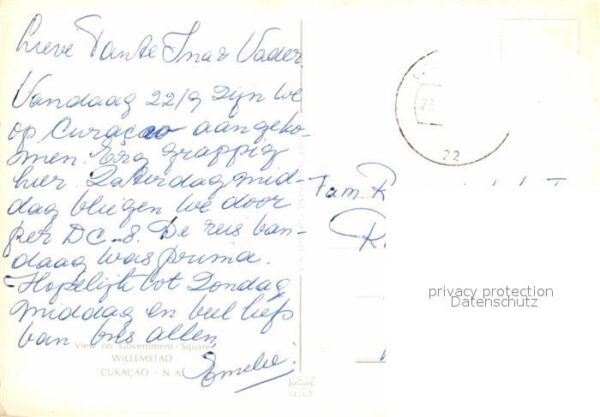 Lieve Tante Ina & Vader,
Vandaag 22/9 zijn we
op Curaçao aangeko-
men. Erg grappig
hier. Zaterdagmid-
dag vliegen we door
per DC-8. De reis van-
daag was prima.
Hopelijk tot Zondag
middag en veel liefs
van ons allen,
Emelie.
View on Government-Square
WILLEMSTAD
CURAÇAO - N.A.
22
Fam.
privacy protection
Datenschutz